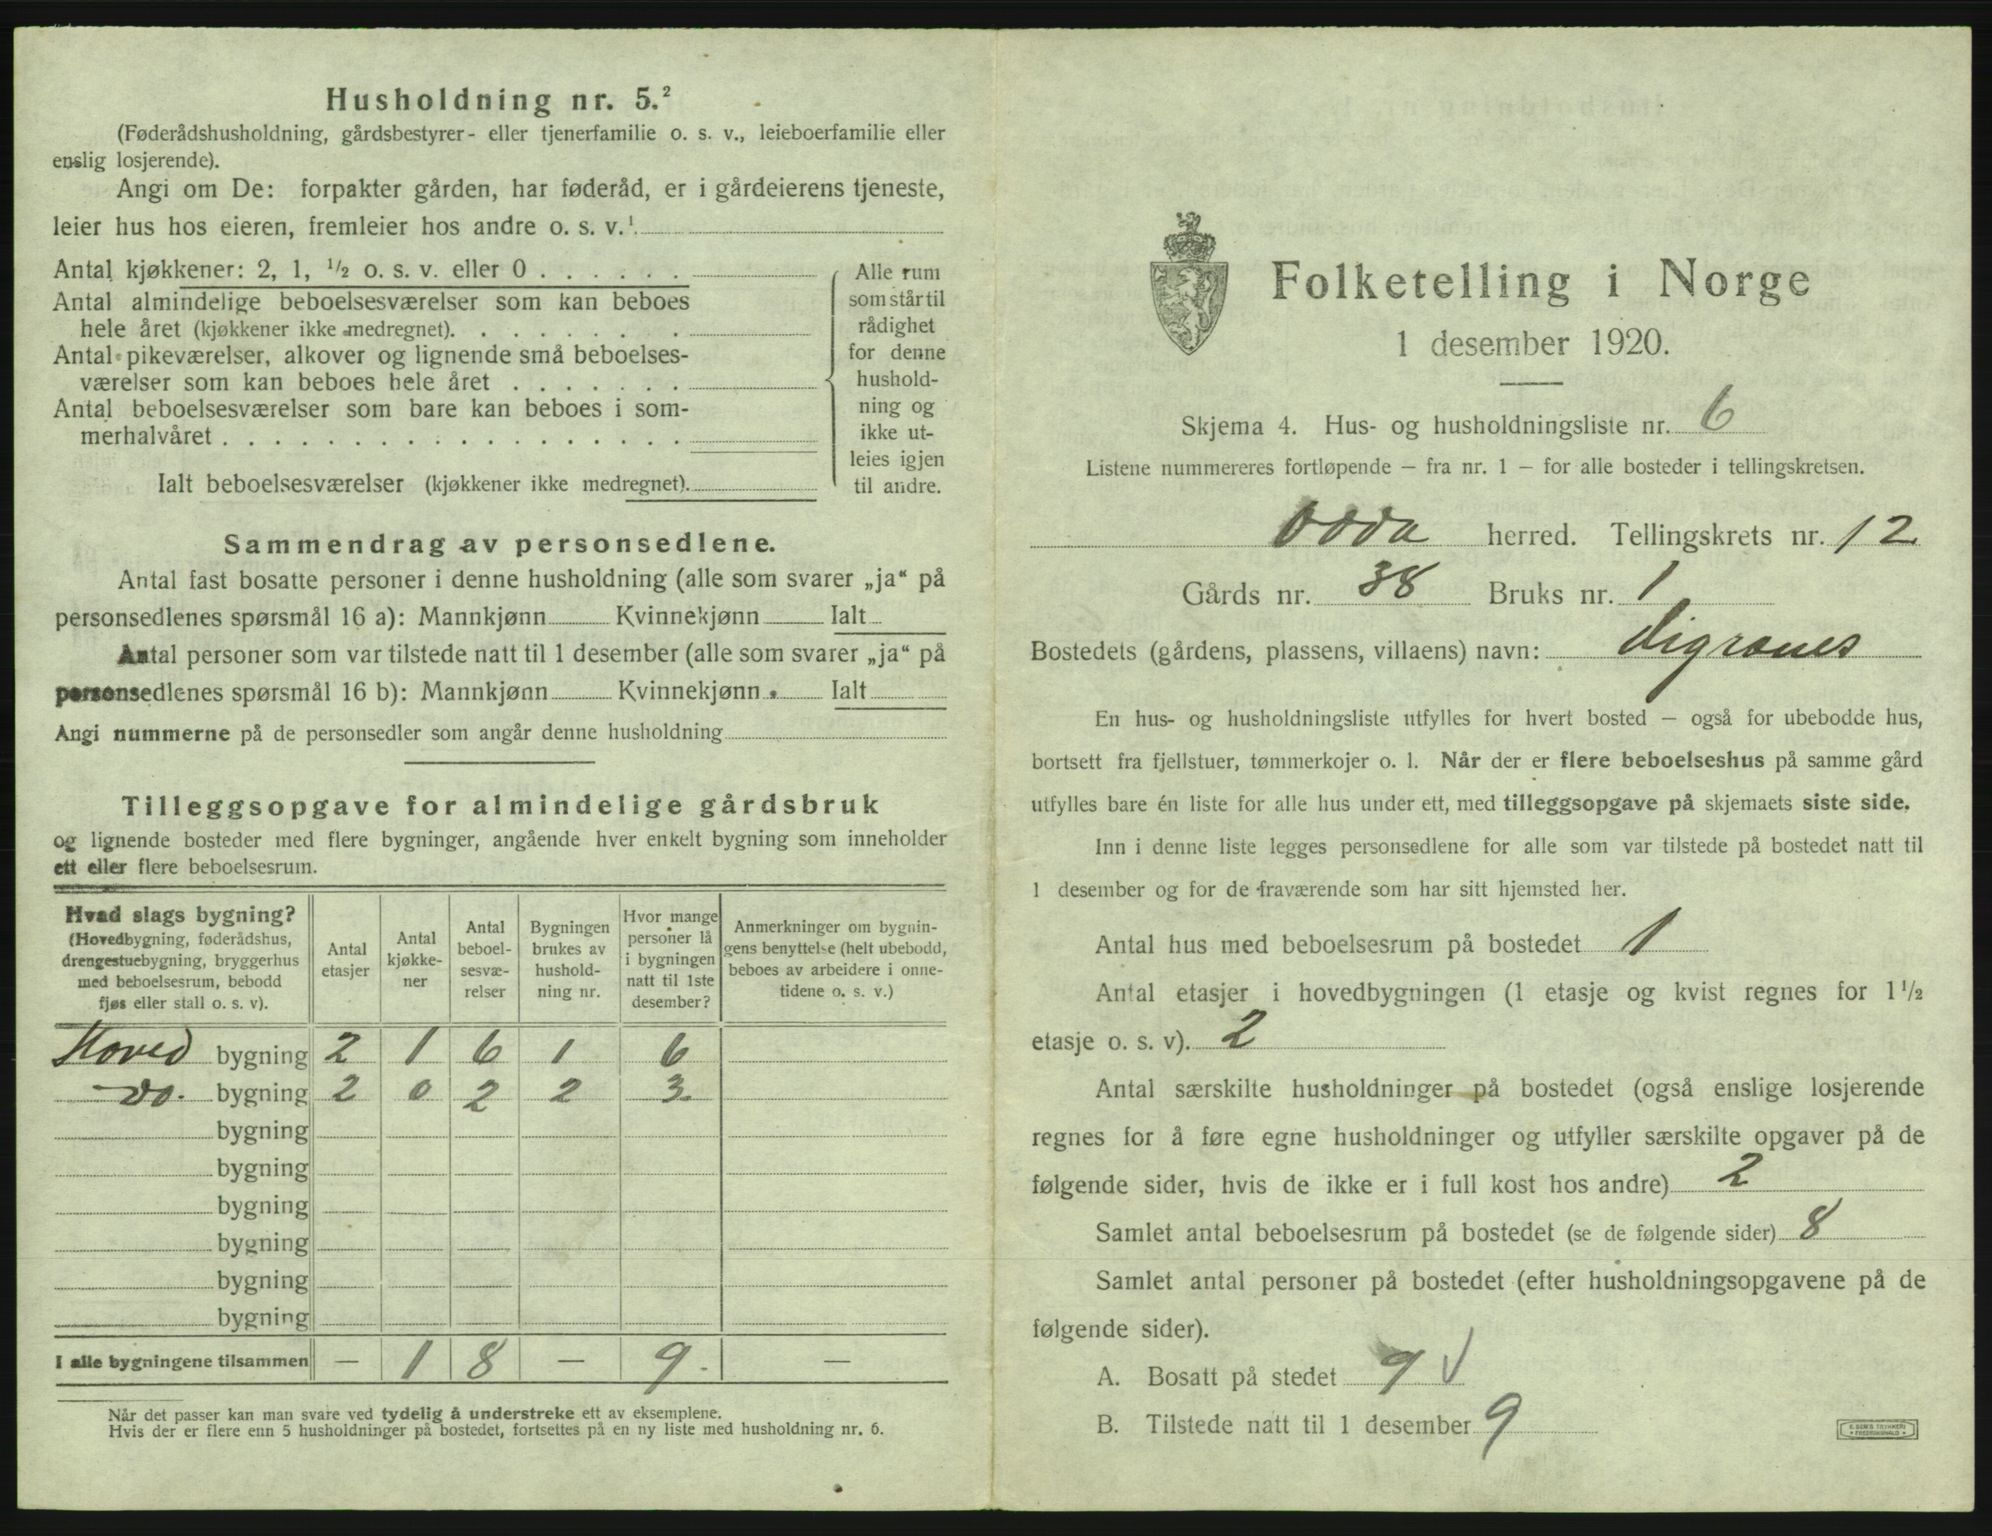 Husholdning nr. 5.²
(Føderådshusholdning, gårdsbestyrer- eller tjenerfamilie o. s. v., leieboerfamilie eller
enslig losjerende).
Angi om De: forpakter gården, har føderåd, er i gårdeierens tjeneste,
leier hus hos eieren, fremleier hos andre o. s. v.¹
Antal kjøkkener: 2, 1, ½ o. s. v. eller 0 . . . . . .
Antal almindelige beboelsesværelser som kan beboes
hele året (kjøkkener ikke medregnet). . . . . . . . .
Antal pikeværelser, alkover og lignende små beboelses-
værelser som kan beboes hele året . . . . . . .
Antal beboelsesværelser som bare kan beboes i som-
merhalvåret . . . . . . . . . . . . . . . . . .
Ialt beboelsesværelser (kjøkkener ikke medregnet).
Alle rum
som står til
rådighet
for denne
hushold-
ning og
ikke ut-
leies igjen
til andre.
Sammendrag av personsedlene.
Antal fast bosatte personer i denne husholdning (alle som svarer „ja“ på
personsedlenes spørsmål 16 a): Mannkjønn Kvinnekjønn Ialt
Antal personer som var tilstede natt til 1 desember (alle som svarer „ja“ på
personsedlenes spørsmål 16 b): Mannkjønn Kvinnekjønn Ialt
Angi nummerne på de personsedler som angår denne husholdning
Tilleggsopgave for almindelige gårdsbruk
og lignende bosteder med flere bygninger, angående hver enkelt bygning som inneholder
ett eller flere beboelsesrum.
Hvad slags bygning?
(Hovedbygning, føderådshus,
drengestuebygning, bryggerhus
med beboelsesrum, bebodd
fjøs eller stall o. s. v).
Antal
etasjer
Antal
kjøkke-
ner
Antal
beboel-
sesvæ-
relser
Bygningen
brukes av
hushold-
ning nr.
Hvor mange
personer lå
i bygningen
natt til 1ste
desember?
Anmerkninger om bygnin-
gens benyttelse (helt ubebodd,
beboes av arbeidere i onne-
tidene o. s. v.)
Hoved bygning 2 1 6 1 6
— do. bygning 2 0 2 2 3.
bygning
bygning
bygning
bygning
bygning
bygning
I alle bygningene tilsammen — 1 8 — 9. —
Når det passer kan man svare ved tydelig å understreke ett av eksemplene.
Hvis der er flere enn 5 husholdninger på bostedet, fortsettes på en ny liste med husholdning nr. 6.
Folketelling i Norge
1 desember 1920.
Skjema 4. Hus- og husholdningsliste nr. 6
Listene nummereres fortløpende — fra nr. 1 — for alle bosteder i tellingskretsen.
Odda herred. Tellingskrets nr. 12.
Gårds nr. 38 Bruks nr. 1
Bostedets (gårdens, plassens, villaens) navn: Digranes
En hus- og husholdningsliste utfylles for hvert bosted — også for ubebodde hus,
bortsett fra fjellstuer, tømmerkojer o. l. Når der er flere beboelseshus på samme gård
utfylles bare én liste for alle hus under ett, med tilleggsopgave på skjemaets siste side.
Inn i denne liste legges personsedlene for alle som var tilstede på bostedet natt til
1 desember og for de fraværende som har sitt hjemsted her.
Antal hus med beboelsesrum på bostedet 1
Antal etasjer i hovedbygningen (1 etasje og kvist regnes for 1½
etasje o. s. v). 2
Antal særskilte husholdninger på bostedet (også enslige losjerende
regnes for å føre egne husholdninger og utfyller særskilte opgaver på de
følgende sider, hvis de ikke er i full kost hos andre) 2
Samlet antal beboelsesrum på bostedet (se de følgende sider) 8
Samlet antal personer på bostedet (efter husholdningsopgavene på de
følgende sider).
A. Bosatt på stedet 9 √
B. Tilstede natt til 1 desember 9